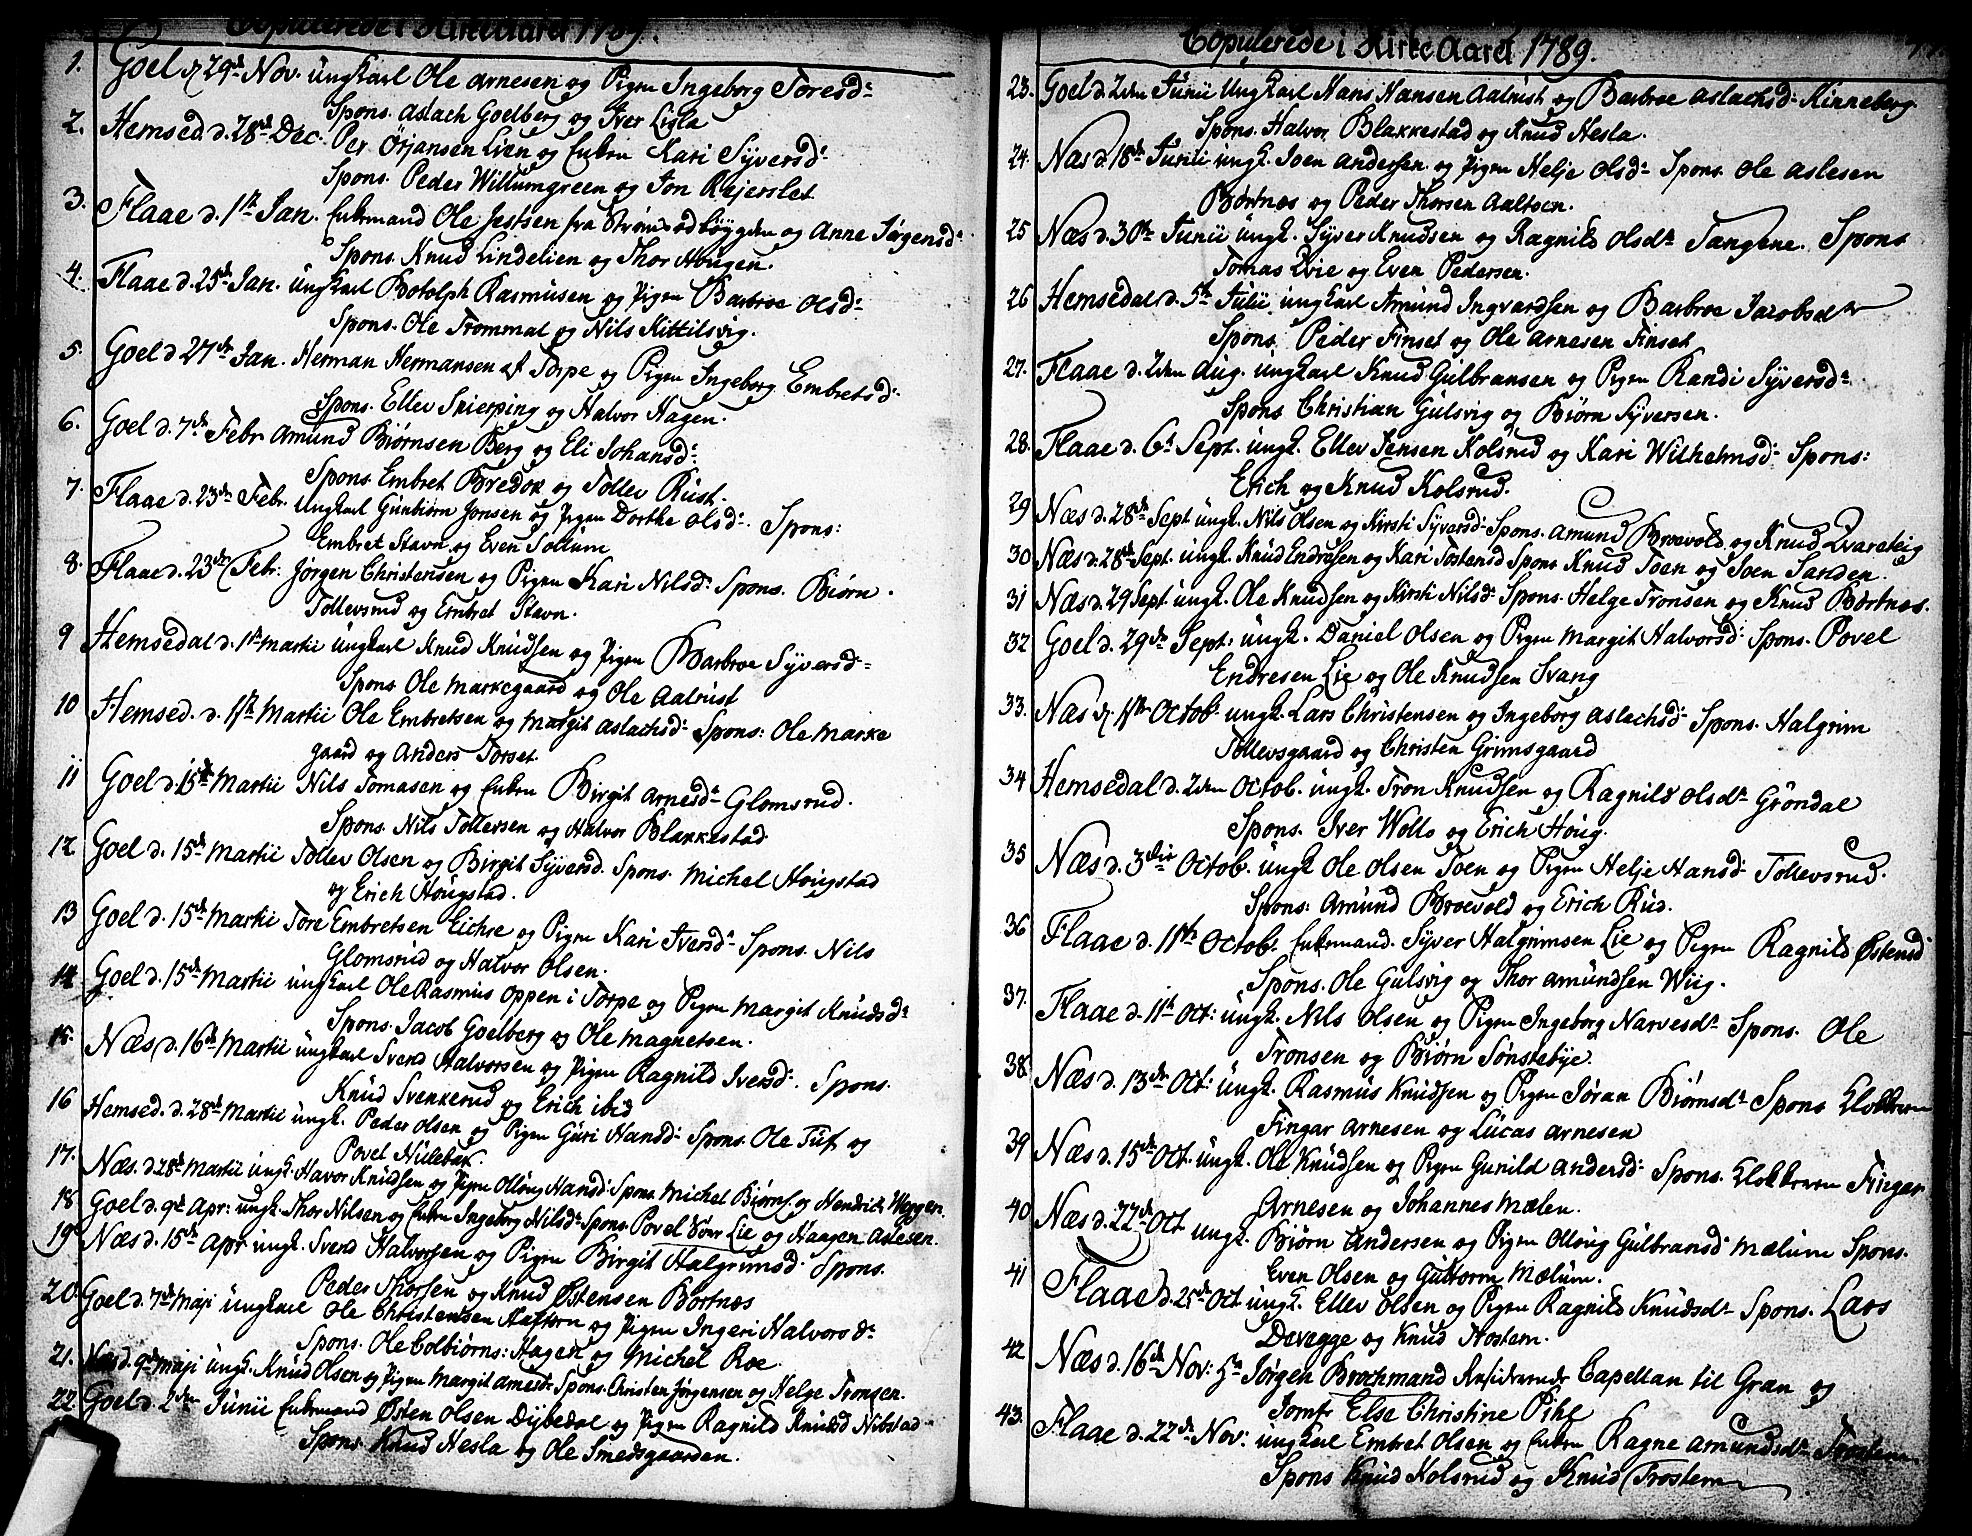 Copulerede i Kirke Aaret 1789.
1. Goel d. 29de Nov. ungkarl Ole Arnesen og Pigen Ingeborg Toresd:
Spons. Aslach Goelberg og Iver Lisla
2. Hemsed d. 28de Dec. Per Örjansen Lien og Enken Kari Syversd:
Spons. Peder Willumgreen og Jon Kejerslet
3. Flaae d. 1ste Jan. Enkemand Ole Jestsen fra Strømsodbøygden og Anne Jørgensd:
Spons. Knud Lindelien og Thor Hougen.
4. Flaae d. 25de Jan. ungkarl Botolph Rasmusen og Pigen Barbroe Olsd:
Spons. Ole Trommal og Nils Kittilsvig.
5. Goel d. 27de Jan. Herman Hermansen af Torpe og Pigen Ingeborg Embretsd:
Spons. Ellev Skierping og Halvor Hagen.
6. Goel d. 7de Febr. Amund Biørnsen Berg og Eli Johansd:
Spons. Embret Bredok og Tollev Rust.
7. Flaae d. 23de Febr. ungkarl Gunbiørn Jonsen og Pigen Dorthe Olsd: Spons:
Embret Stavn og Even Sollum
8. Flaae d. 23de Febr. Jörgen Christensen og Pigen Kari Nilsd: Spons. Biørn
Tollevsrud og Embret Stavn.
9 Hemsedal d. 1ste Martii ungkarl Knud Knudsen og Pigen Barbroe Syversd:
Spons Ole Markegaard og Ole Aalrust
10 Hemsed. d. 1ste Martii Ole Embretsen og Margit Aslachsd: Spons: Ole Marke
gaard og Anders Torset.
11 Goel d. 15de Martii Nils Tomasen og Enken Birgit Arnesd: Glomsrud.
Spons. Nils Tollevsen og Halvor Blakkestad
12 Goel d. 15de Martii Tollev Olsen og Birgit Syversd. Spons. Michel Hougstad
og Erich Hougstad.
13 Goel d. 15de Martii Tore Embretsen Eichre og Pigen Kari Iversd: Spons. Nils
Glomsrud og Halvor Olsen.
14 Goel d. 15de Martii ungkarl Ole Rasmus Oppen i Torpe og Pigen Margit Knudsd:
Spons. Jacob Goelberg og Ole Magnetsen.
15. Næs d. 16de Martii ungkarl Svend Halvorsen og Pigen Ragnild Iversd: Spons.
Knud Svenkerud og Erich ibid
16 Hemsed. d. 28de Martii ungk. Peder Olsen og Pigen Guri Hansd: Spons. Ole Tuf og
Povel Hulebak.
17. Næs. d. 28de Martii ungk. Havor Knudsen og Pigen Olloug Hansd: Spons. Michel Biørns. og Hendrich Meggen.
18 Goel d. 9de Apr: ungk. Thor Nilsen og Enken Ingeborg Nilsd: Spons. Povel Søn Lie og Haagen Aslesen.
19 Næs d. 15de Apr. ungk. Svend Halvorsen og Pigen Birgit Halgrimsd. Spons.
Peder Thorsen og Knud Østensen Børtnæs
20. Goel d. 7de Maji Ungkarl Ole Christensen Haftorn og Pigen Ingeri Halvorsd:
Spons. Ole Colbiørns: Hagen og Michel Roe.
21. Næs d. 9de Maji ungk. Knud Olsen og Pigen Margit Arnesd: Spons. Christen Jørgensen og Helge Tronsen.
22. Goel d. 2den Junii Enkemand Østen Olsen Dybedal og Pigen Ragnild Knudsd Nibstad
Spons. Knud Hesla og Ole Smedsgaarden.
Copulerede i Kirke Aaret 1789.
23. Goel d. 2den Junii Ungkarl Hans Hansen Aalrust og Barbroe Aslachsd: Kinneberg.
Spons. Halvor Blakkestad og Knud Hesla.
24. Næs d. 18de Junii ungk. Joen Andersen og Pigen Helje Olsd: Spons. Ole Aslesen
Børtnæs og Peder Thorsen Aaltoen.
25 Næs d. 30te Junii ungk. Syver Knudsen og Ragnild Olsdr Tangene. Spons
Tomas Qvie og Even Pedersen.
26 Hemsedal d. 5te Julii ungkarl Amund Ingvardsen og Barbroe Jacobsdr
Spons. Peder Finset og Ole Arnesen Finset
27. Flaae d. 2den Aug. ungkarl Knud Gulbransen og Pigen Randi Syversd:
Spons Christian Gulsvig og Biørn Syversen.
28. Flaae d. 6te Sept. ungk. Ellev Jensen Kolsrud og Kari Wilhelmsd: Spons:
Erich og Knud Kolsrud.
29 Næs d. 28de Sept ungk. Nils Olsen og Kirsti Syversd: Spons. Amund Broevold og Knud Qvareteig
30 Næs d. 28de Sept. ungk. Knud Endresen og Kari Tostensd Spons Knud Toen og Joen Sanden.
31 Næs d. 29 Sept ungk. Ole Knudsen og Kirsti Nilsd: Spons. Helge Tronsen og Knud Børtnæs.
32 Goel d. 29de Sept: ungk. Daniel Olsen og Pigen Margit Halvorsd: Spons. Povel
Endresen Lie og Ole Knudsen Svang
33. Næs d. 1ste Octob. ungk. Lars Christensen og Ingeborg Aslachsd: Spons. Halgrim
Tollevsgaard og Christen Grimsgaard
34 Hemsedal d. 2den Octob. ungk. Tron Knudsen og Ragnild Olsdr Gröndal
Spons. Iver Wolls og Erich Houg.
35 Næs d. 3die Octob. ungk Ole Olsen Toen og Pigen Helje Hansd: Tollevsrud.
Spons: Amund Broevold og Erich Rud.
36 Flaae d. 11te Octob. Enkemand. Syver Halgrimsen Lie og Pigen Ragnild Østensd
Spons. Ole Gulsvig og Thor Amundsen Wiig.
37. Flaae d. 11te Oct: ungk. Nils Olsen og Pigen Ingeborg Narvesdr Spons. Ole
Tronsen og Biørn Sønstebye.
38 Næs d. 13de Oct: ungk. Rasmus Knudsen og Pigen Jöran Biörnsdr Spons Klokkeren
Fingar Arnesen og Lucas Arnesen
39 Næs d. 15de Oct. ungk. Ole Knudsen og Pigen Gunild Andersd: Spons. Klokkeren Fingar
Arnesen og Johannes Mælen.
40 Næs d. 22de Oct ungk. Biørn Andersen og Pigen Olloug Gulbransd: Mælum Spons.
Even Olsen og Guttorm Mælum.
41 Flaae d. 25de Oct ungk. Ellev Olsen og Pigen Ragnild Knudsdr Spons. Lars
Devegge og Knud Trostem.
42 Næs d. 16de Nov: Hr Jørgen Brochmand Residerende Capellan til Gran og
Jomfr Else Christine Pihl
43. Flaae d. 22de Nov: ungkarl Embret Olsen og Enken Ragne Amundsdr Trostem
Spons Knud Kolsrud og Knud Trostem